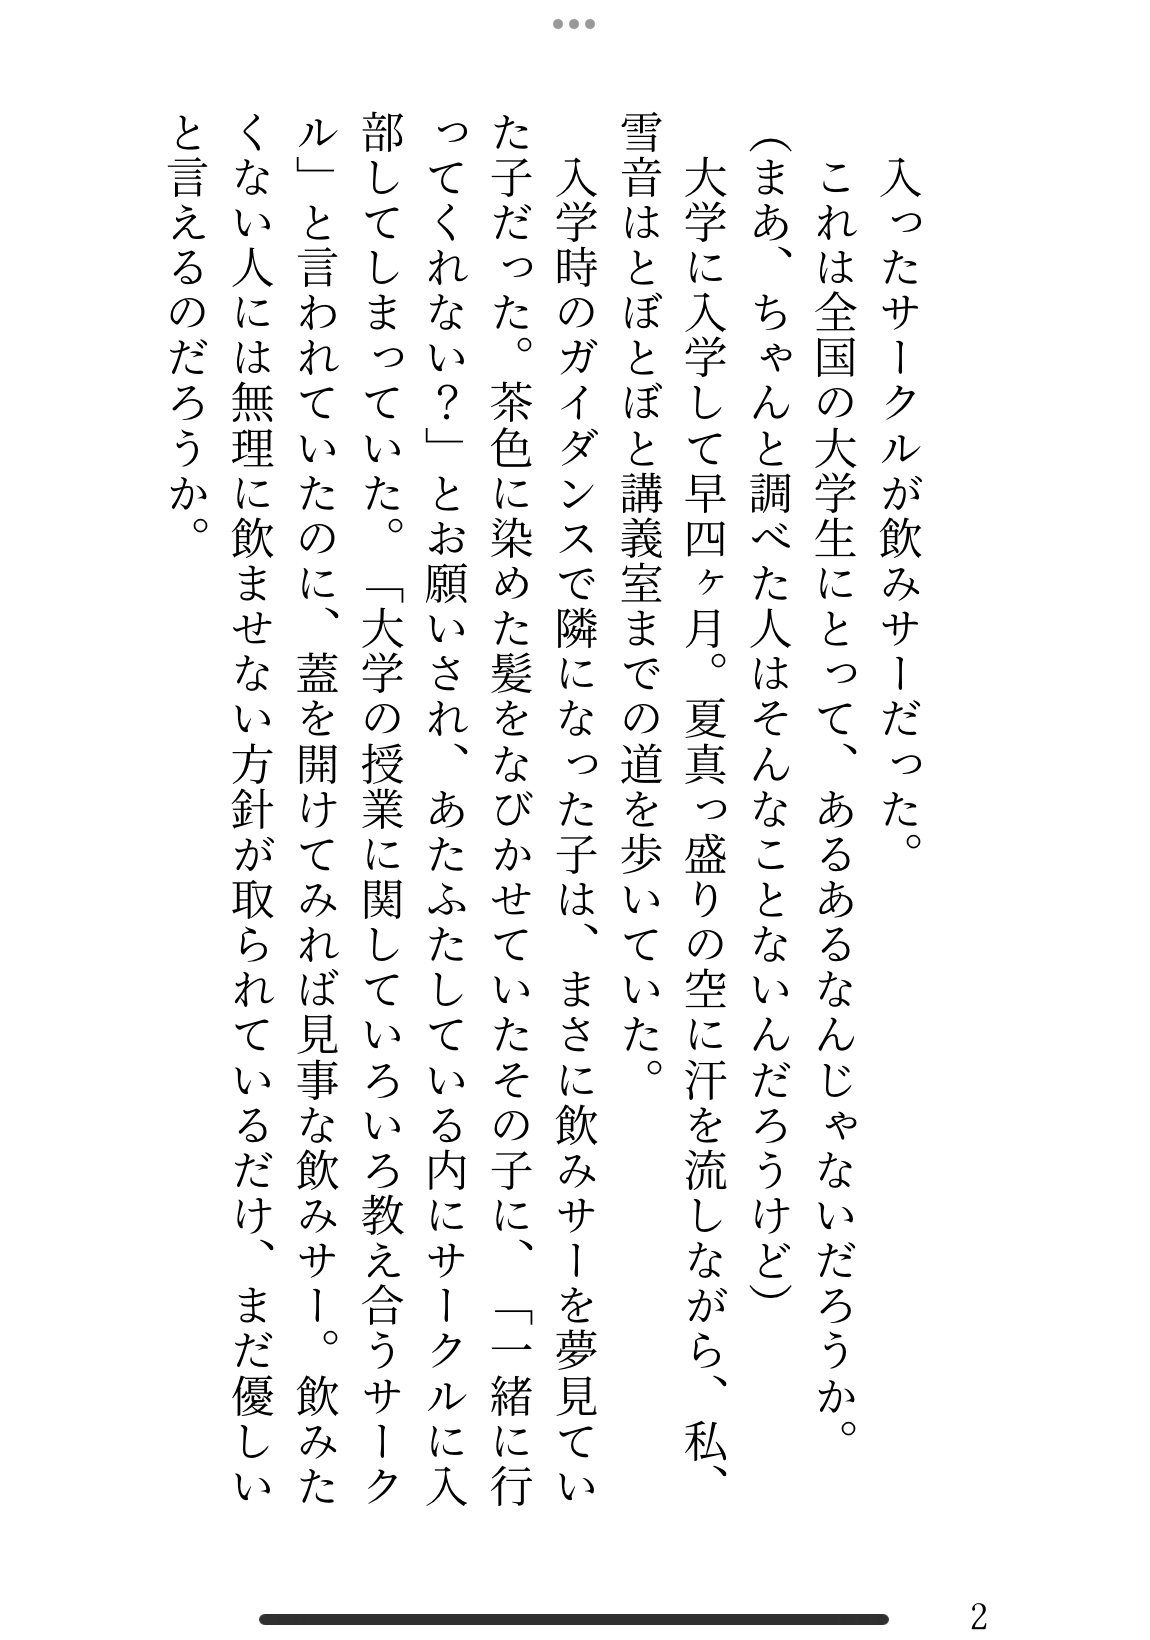 入ったサークルが飲みサーだった。
　これは全国の大学生にとって、あるあるなんじゃないだろうか。
（まあ、ちゃんと調べた人はそんなことないんだろうけど）
　大学に入学して早四ヶ月。夏真っ盛りの空に汗を流しながら、私、
雪音はとぼとぼと講義室までの道を歩いていた。
　入学時のガイダンスで隣になった子は、まさに飲みサーを夢見てい
た子だった。茶色に染めた髪をなびかせていたその子に、「一緒に行
ってくれない？」とお願いされ、あたふたしている内にサークルに入
部してしまっていた。「大学の授業に関していろいろ教え合うサーク
ル」と言われていたのに、蓋を開けてみれば見事な飲みサー。飲みた
くない人には無理に飲ませない方針が取られているだけ、まだ優しい
と言えるのだろうか。
2